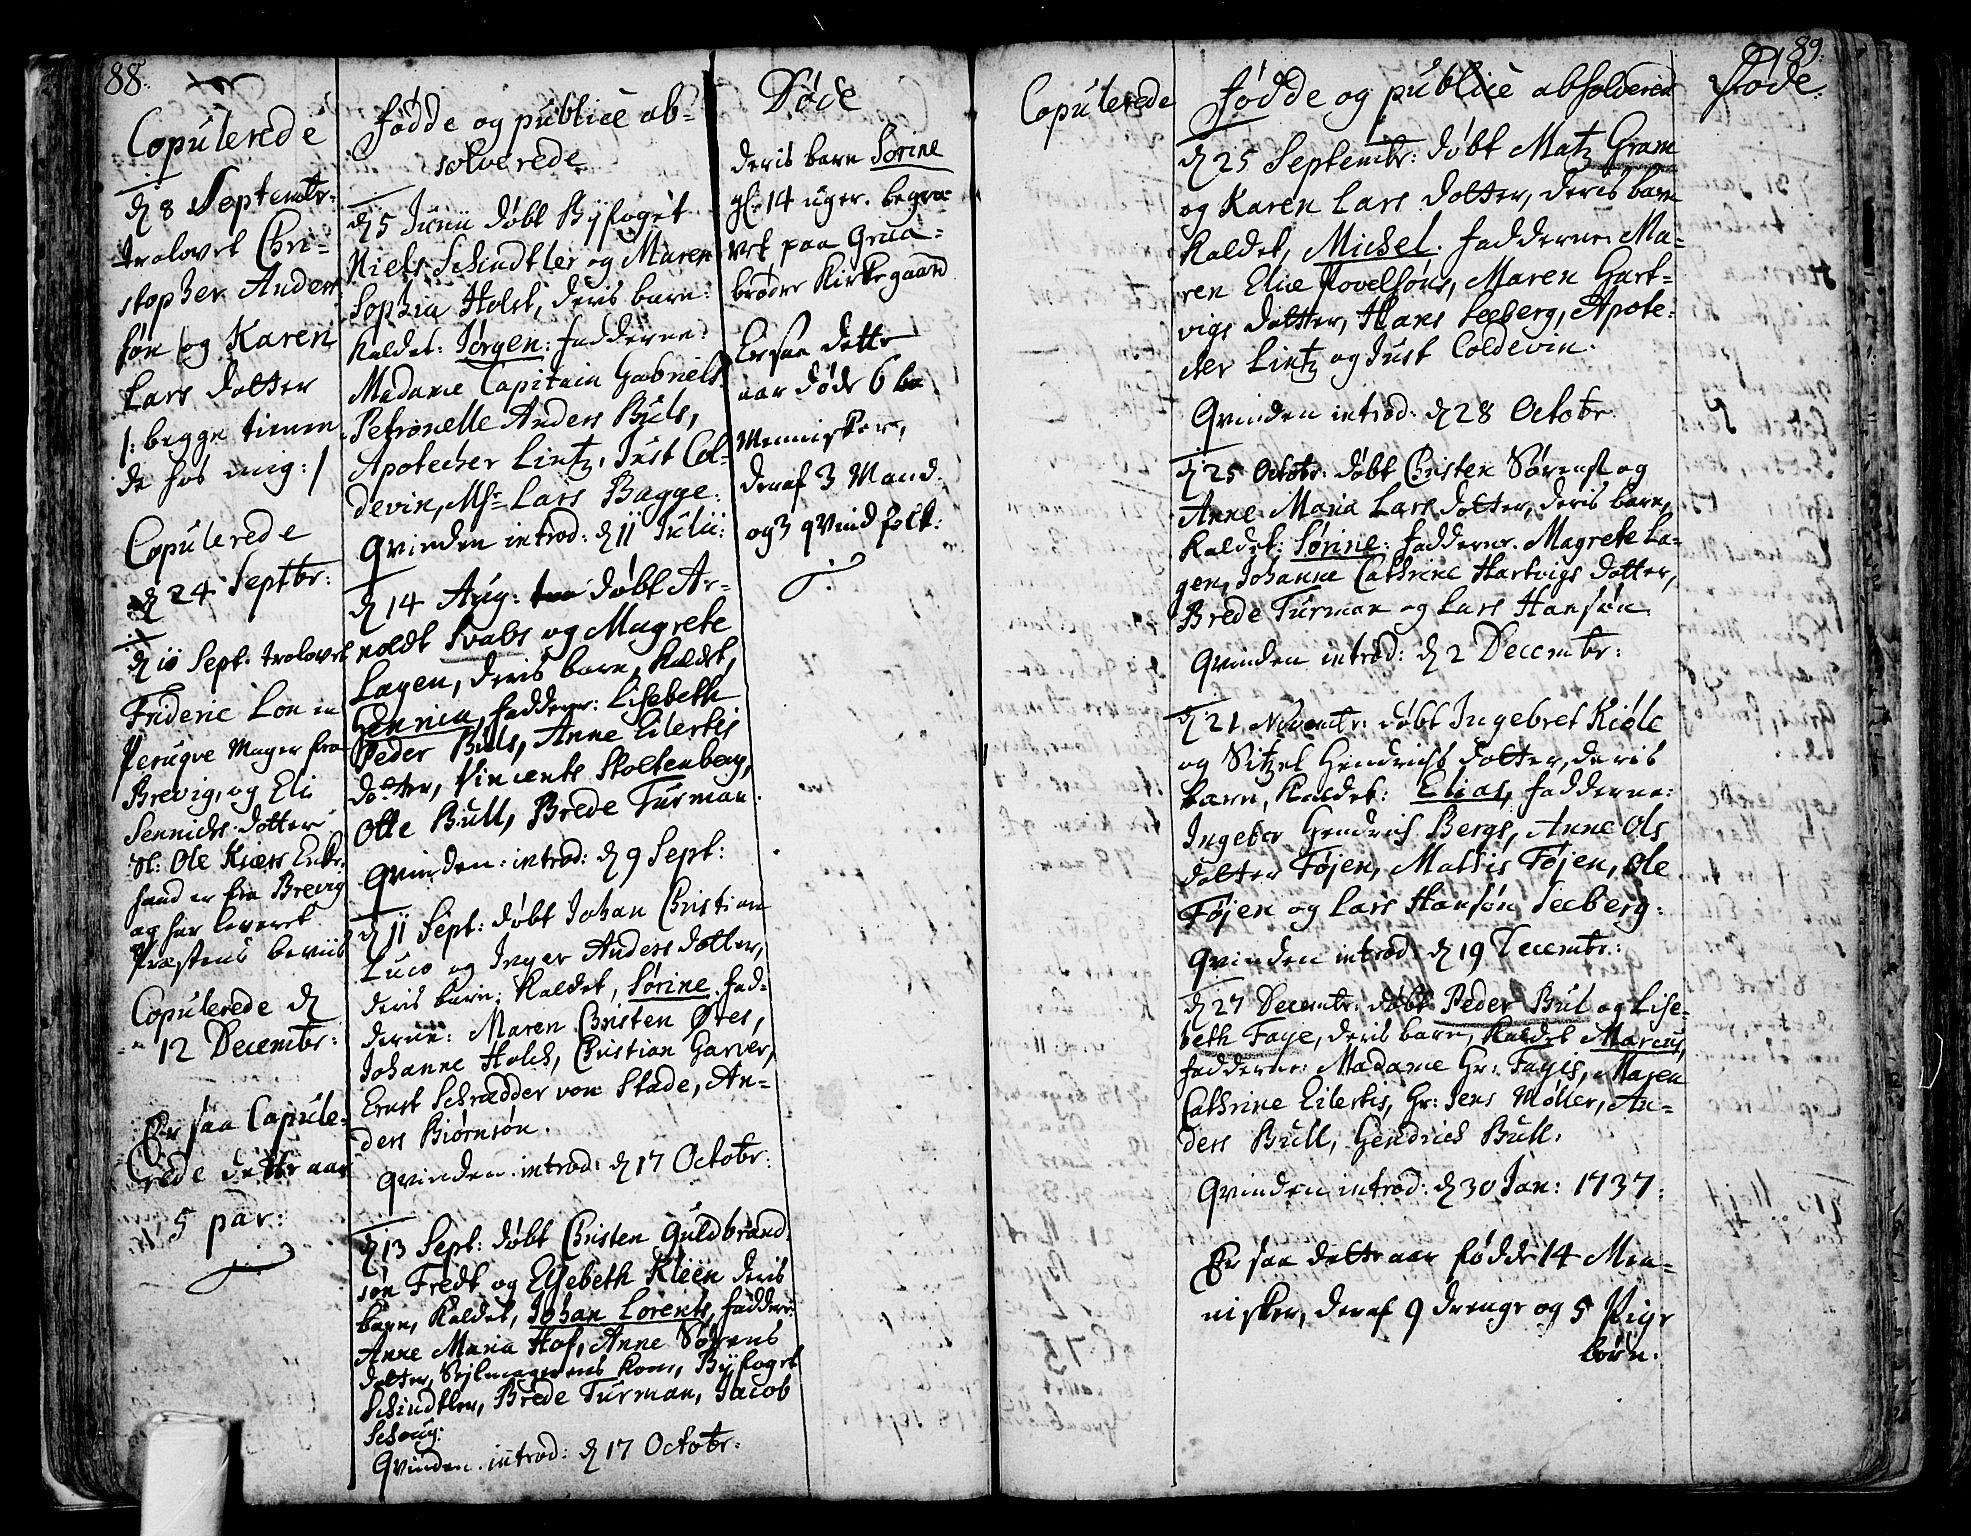 88.
Copulerede
d 8 Septembr:
trolovet Chri-
stopher Anders
søn og Karen
Lars dotter
/: begge tienen
de hos mig: /
Copulerede
d 24 Septbr:
d 10 Sept. trolovet
Frideric Lon en
Perugve Mager fra
Brevig, og Eli
Sennichs dotter
Sl: Ole Kiærs Enke.
hand er fra Brevig
og har leveret
Præstens beviis
Copulerede d
12 Decembr:
Er saa Copule-
rede dette aar
5 par:
fødde og publice ab-
solverede
d 5 Junii døbt Byfoget
Niels Schindtler og Maren
Sophia Holst, deris barn:
kaldet: Jørgen: fadderne:
Madame Capitain Gabriels
Petronelle Anders Buls,
Apotecher Lintz, Just Col-
devin, Msr Lars Bagge:
Qvinden introd: d 11 Julii:
d 14 Aug: døbt Ar-
noldt Svabs og Magrete
Lagen, deris barn, kaldet,
Henrica, fadderne: Lisebeth
Peder Buls, Anne Eilertis
dotter, Vincents Stoltenberg,
Otte Bull, Brede Turman.
Qvinden: introd: d 9 Sept:
d 11 Sept: døbt Johan Christian
Luco og Inger Anders dotter,
deris barn: kaldet, Sørine. fad-
derne: Maren Christen Øres,
Johanne Holch, Christian Garver,
Ernst Schrædder von Stade, An-
ders Biørnsøn.
Qvinden introd: d 17 Octobr:
d 13 Sept: døbt Christen Guldbrand-
søn Fredt og Elsebeth Kleen deris
barn, kaldet, Johan Lorents, fadderne
Anne Maria Hof, Anne Sørens
dotter, Sejlmagerens kone, Byfoget
Schindtler, Brede Turman, Jacob
Schoug:
Qvinden introd: d 17 Octobr:
Døde
deris barn Sørine
gl: 14 uger. begra-
vet paa Graa-
brødre Kirkegaard
Er saa dette
aar døde 6
Mennisker,
deraf 3 Mand.
og 3 qvindfolk:
89.
Copulerede
fødde og publice absolverede
d 25 Septembr: døbt Matz Gram
og Karen Lars dotter, deris barn
kaldet, Michel. fadderne: Ma-
ren Elie Povelsøns, Maren Hart-
vigs dotter, Hans Seeberg, Apote-
cher Lintz og Just Coldevin.
Qvinden introd: d 28 Octobr
d 25 Octobr: døbt Christen Sørens og
Anne Maria Lars dotter, deris barn,
kaldet: Sørine: fadderne. Magrete La-
gen, Johanne Cathrine Hartvigs dotter,
Brede Turman og Lars Hansøn.
Qvinden introd: d 2 Decembr:
d 21 Novembr: døbt Ingebret Kiøle
og Sitzel Hendrichs dotter, deris
barn, kaldet: Elias, fadderne:
Ingebor Hendrich Bergs, Anne Ols
dotter Føjen, Mathis Føjen, Ole
Føjen og Lars Hansøn Seeberg:
Qvinden introd: d 19 Decembr:
d 27 Decembr: døbt Peder Bul og Lise-
beth Faye, deris barn, kaldet Marcus,
fadderne: Madame Hr: Fayis, Maren
Cathrine Eilertis, Hr: Jens Møller, An-
ders Bull, Hendrich Bull:
Qvinden introd: d 30 Jan: 1737:
Er saa dette aar fødde 14 Men-
nisker, deraf 9 drenge og 5 Pige
børn.
Døde.